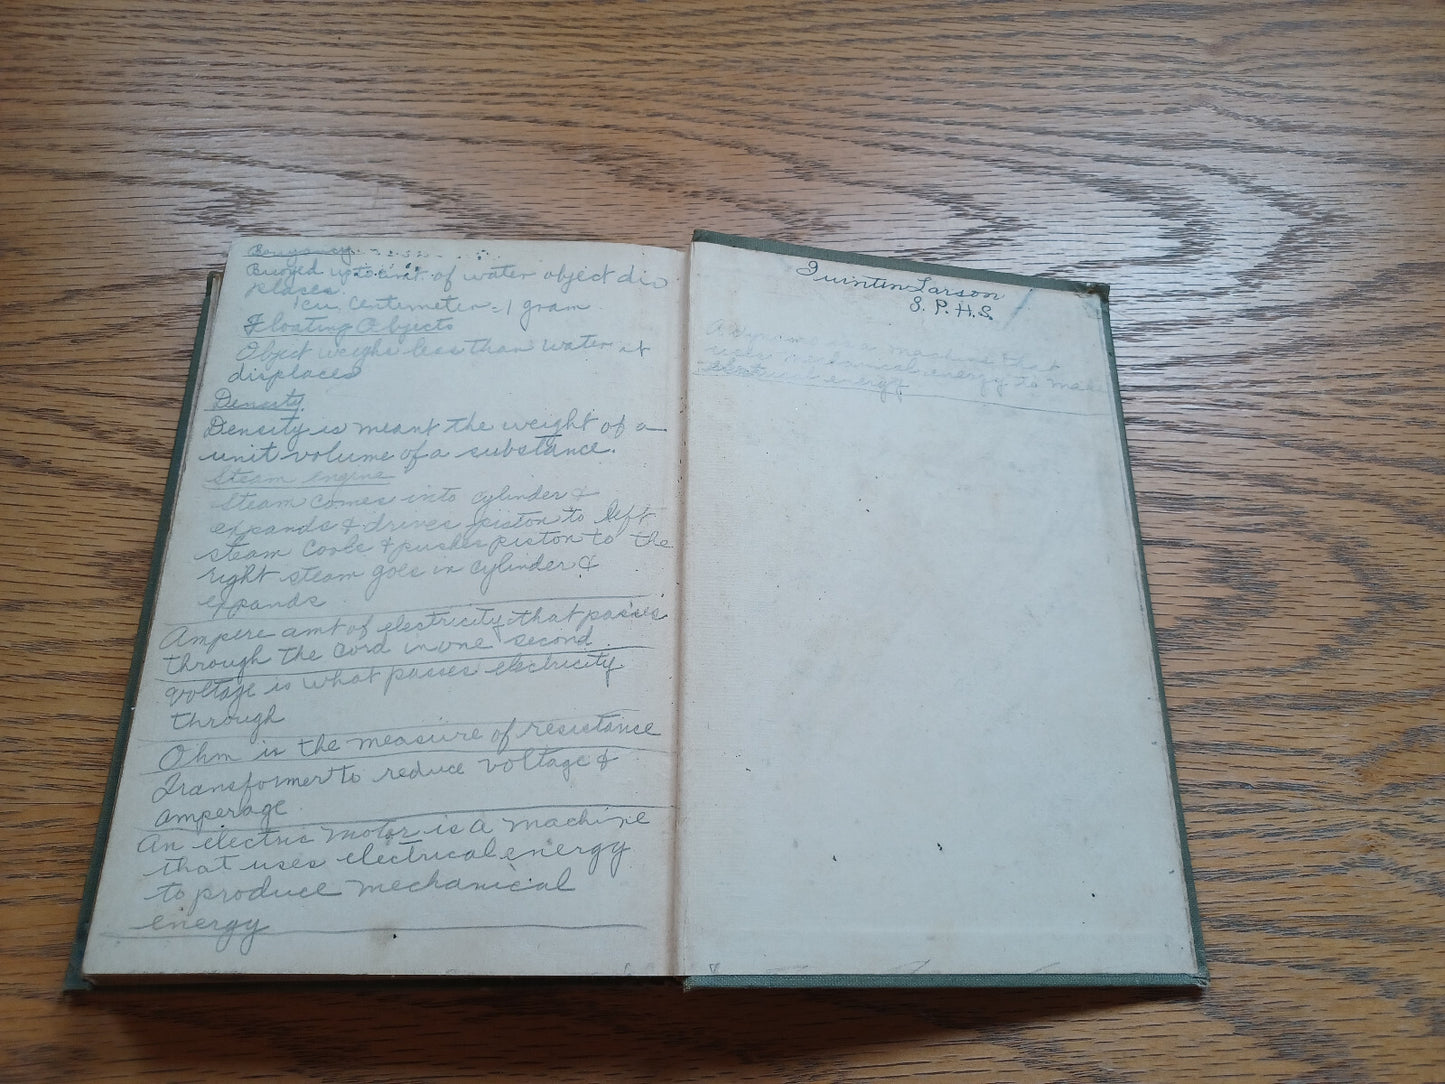 Bouyancy
Buoyed up wt of water object dis
places.
1 cu. Centimeter = 1 gram
Floating Objects
Object weighs less than water it
displaces
Density
Density is meant the weight of a
unit volume of a substance.
Steam engine
Steam comes into cylinder &
expands & drives piston to left
steam cools & pushes piston to the
right steam goes in cylinder &
expands
Ampere amt of electricity that passes
through the cord in one second
Voltage is what passes electricity
through
Ohm is the measure of resistance
Transformer to reduce voltage &
amperage
An electric motor is a machine
that uses electrical energy
to produce mechanical
energy
Quintin Larson
S. P. H. S.
A dynamo is a machine that
uses mechanical energy to make
electrical energy